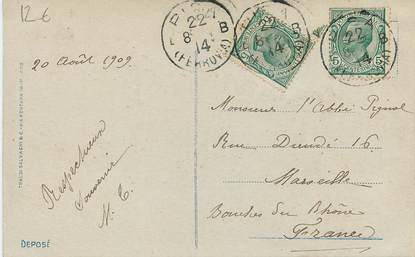 12€
PISA
22
8
14
(FERROVIA)
20 Août 1909
Monsieur l'Abbé Pignol
Rue Dieudé 16
Marseille
Bouches du Rhône
France
Respectueux
Souvenir
N. C.
DEPOSÉ